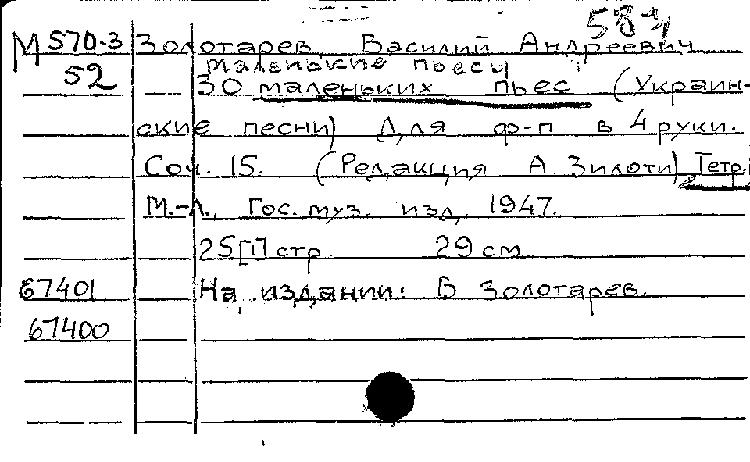 583
М 570-3 Золотарев, Василий Андреевич
52 маленькие пьесы
30 маленьких пьес (Украин-
ские песни) Для ф-п в 4 руки.
Соч. 15. (Редакция А Зилоти) Тетр.
М.-Л., Гос. муз. изд, 1947.
25[1] стр 29 см
67401 На издании: В Золотарев.
67400